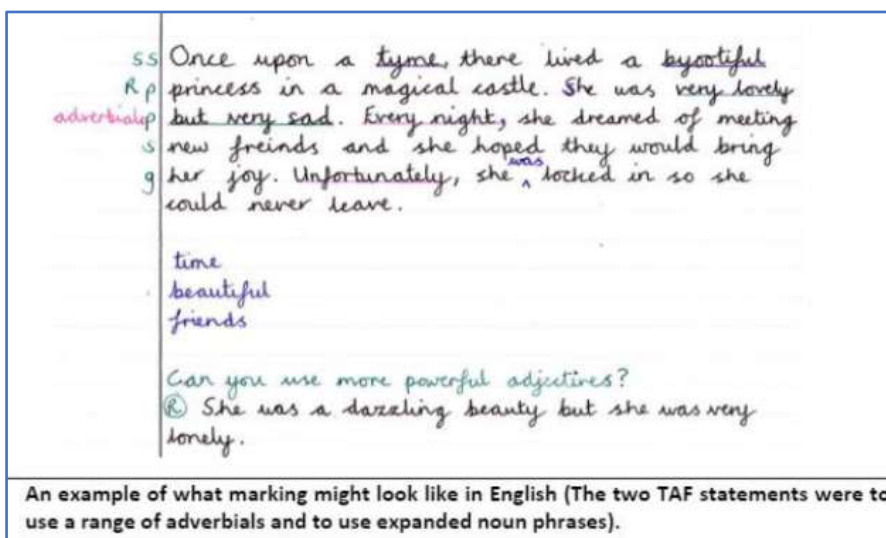 ss Once upon a tyme, there lived a byootiful
R p princess in a magical castle. She was very lovely
adverbials p but very sad. Every night, she dreamed of meeting
s new freinds and she hoped they would bring
g her joy. Unfortunately, she was locked in so she
could never leave.
time
beautiful
friends
Can you use more powerful adjectives?
R She was a dazzling beauty but she was very
lonely.
An example of what marking might look like in English (The two TAF statements were to
use a range of adverbials and to use expanded noun phrases).